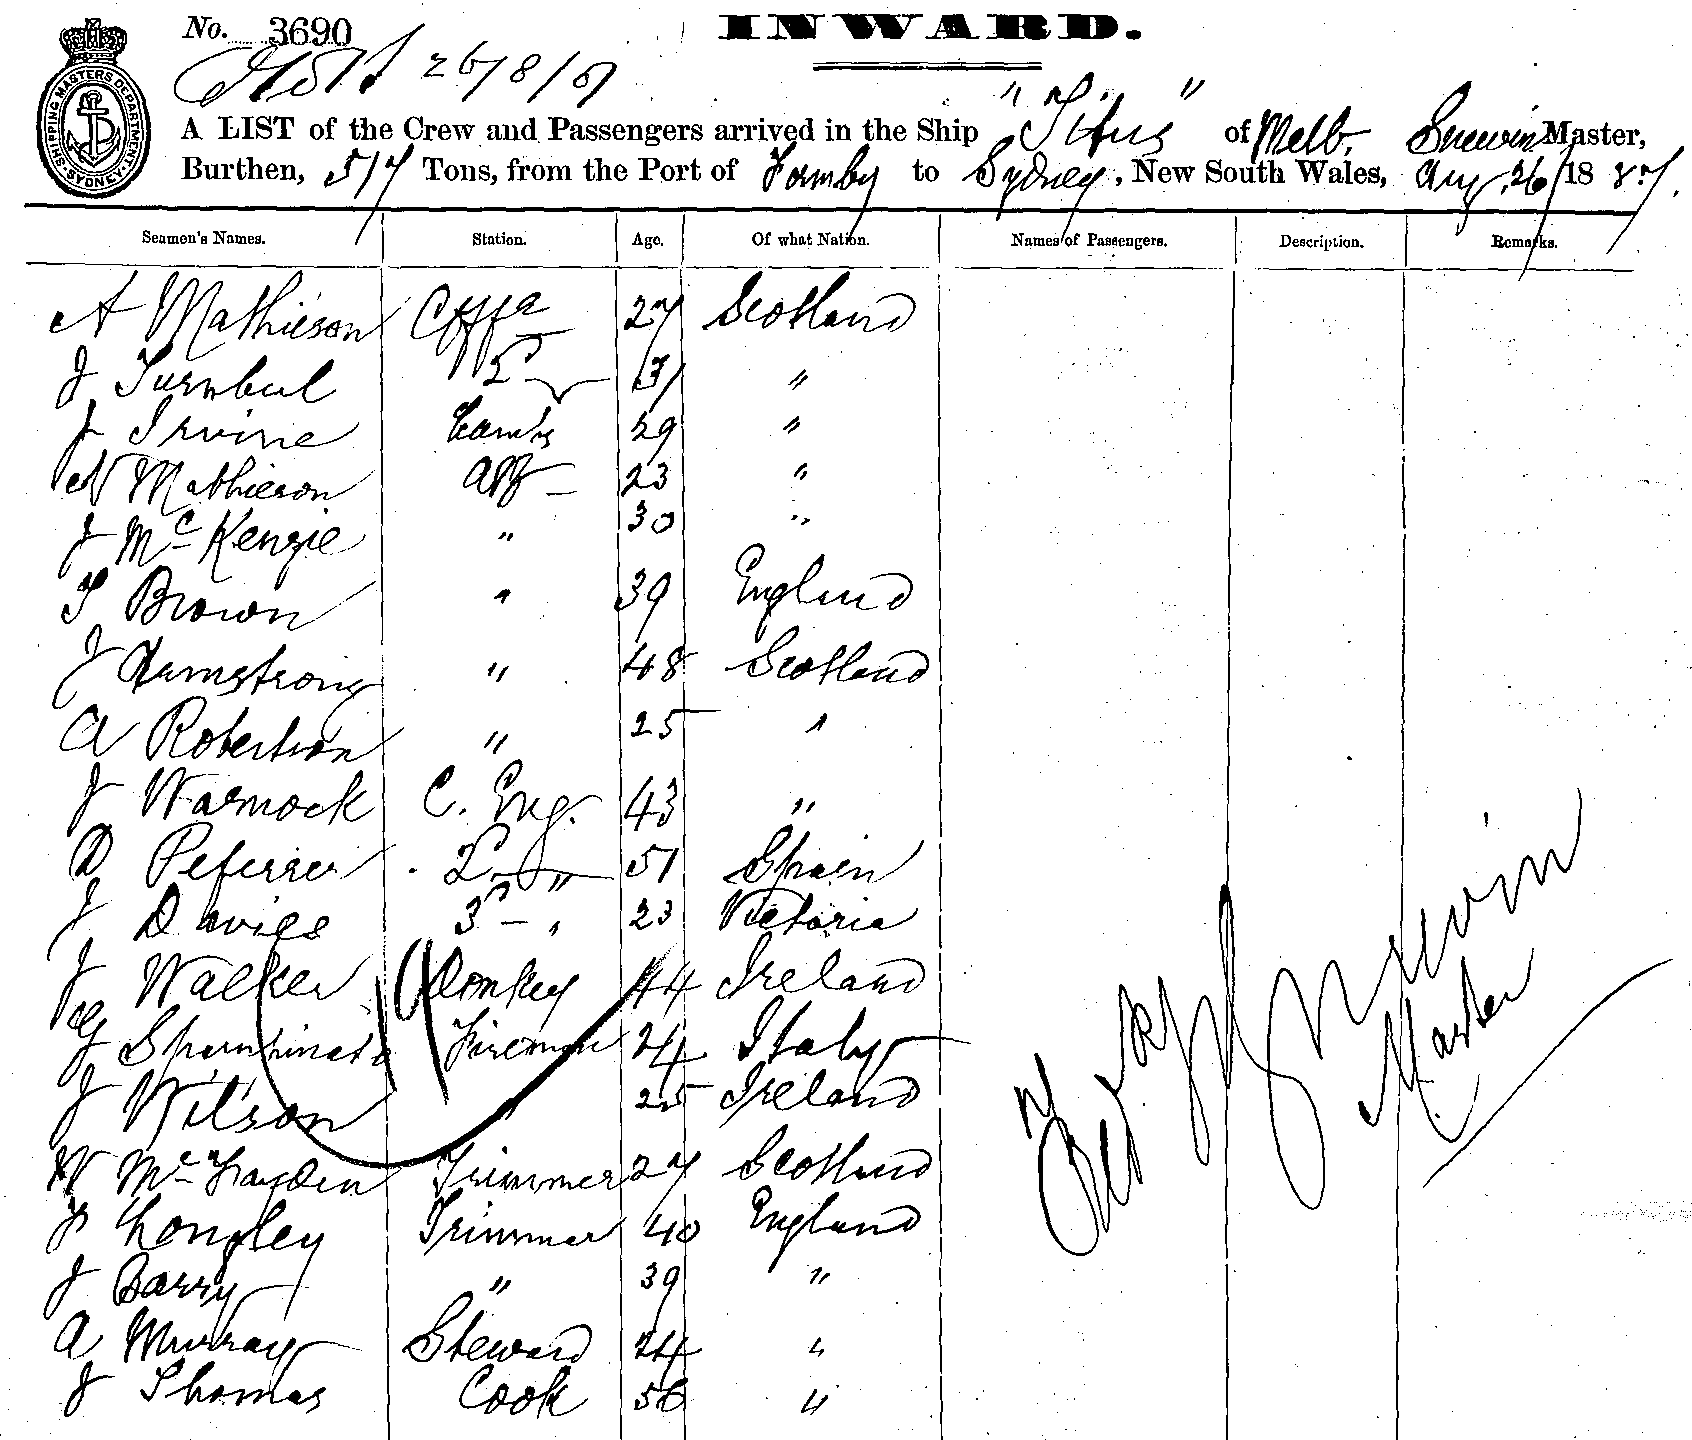 No. 3690 INWARD.
26/8/87
A LIST of the Crew and Passengers arrived in the Ship "Titus" of Melb. Master,
Burthen, 517 Tons, from the Port of Formby to Sydney, New South Wales, Aug. 26/1887.
SHIPPING MASTERS DEPARTMENT SYDNEY
Seamen's Names. Station. Age. Of what Nation. Names of Passengers. Description. Remarks.
A Mathieson 27 Scotland
J Turnbul 2d 31 "
J Irvine Lamps 29 "
N Mathieson AB 23 "
J McKenzie " 30 "
T Brown " 39 England
J Armstrong " 48 Scotland
A Robertson " 25 "
J Warnock C. Eng. 43 "
D Peferrer 2d " 51 Spain
J Davies 3d " 23 Victoria
J Walker Donkey 44 Ireland
Fireman 24 Italy
J Wilson " 25 Ireland
W McFayden Trimmer 27 Scotland
Longley Trimmer 40 England
J Barry " 39 "
A Murray Steward 24 "
J Thomas Cook 56 "
19
Master